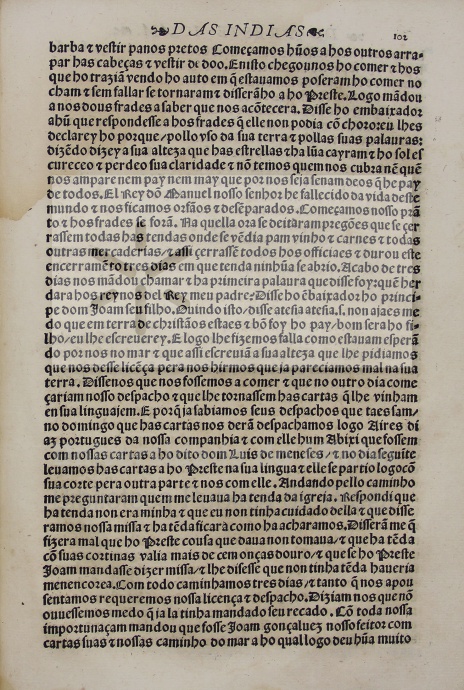 DAS INDIAS
102
barba ⁊ vestir panos pretos Começamos hũos a hos outros arra-
par has cabeças ⁊ vestir de doo. E nisto chegou nos ho comer ⁊ hos
que ho traziã vendo ho auto em q̃ estauamos poseram ho comer no
cham ⁊ sem fallar se tornaram ⁊ disserã ho a ho Preste. Logo mãdou
a nos dous frades a saber que nos acõtecera. Disse ho embaixador
a hũ que respondesse a hos frades q̃ elle non podia cõ choro ⁊ eu lhes
declarey ho porque/pollo vso da sua terra ⁊ pollas suas palauras:
dizẽdo dizey a sua alteza que has estrellas ⁊ ha lũa cayram ⁊ ho sol es
cureceo ⁊ perdeo sua claridade ⁊ nõ temos quem nos cubra nẽ quẽ
nos ampare nem pay nem may que por nos seja senam deos q̃ he pay
de todos. El Rey dõ Manuel nosso senhor he fallecido da vida deste
mundo ⁊ nos ficamos orfãos ⁊ desẽparados. Começamos nosso prã
to ⁊ hos frades se forã. Ha quella ora se deitaram pregões que se çer
rassem todas has tendas onde se vẽdia pam vinho ⁊ carnes ⁊ todas
outras merçaderias/⁊ assi çerrassẽ todos hos officiaes ⁊ durou este
encerramẽto tres dias em que tenda ninhũa se abrio. Acabo de tres
dias nos mãdou chamar ⁊ ha primeira palaura que disse foy: quẽ her
dara hos reynos del Rey meu padre: Disse ho ẽbaixador ho princi-
pe dom Joam seu filho. Ouindo isto/disse atesia atesia .s. non ajaes me
do que em terra de christãos estaes ⁊ bõ foy ho pay/bom sera ho fi-
lho/eu lhe escreuerey. E logo lhe fizemos falla como estauam esperã
do por nos no mar ⁊ que assi escreuiã a sua alteza que lhe pidiamos
que nos desse licẽça pera nos hirmos que ja pareciamos mal na sua
terra. Dissenos que nos fossemos a comer ⁊ que no outro dia come
çariam nosso despacho ⁊ que lhe tornassem has cartas q̃ lhe vinham
en sua linguajem. E porq̃ ja sabiamos seus despachos que taes sam/
no domingo que has cartas nos derã despachamos logo Aires di
az portugues da nossa companhia ⁊ com elle hum Abixi que fossem
com nossas cartas a ho dito dom Luis de meneses/⁊ no dia seguĩte
leuamos has cartas a ho Preste na sua lingua ⁊ elle se partio logo cõ
sua corte pera outra parte ⁊ nos com elle. Andando pello caminho
me preguntaram quem me leuaua ha tenda da igreja. Respondi que
ha tenda non era minha ⁊ que eu non tinha cuidado della ⁊ que disse
ramos nossa missa ⁊ ha tẽda ficara como ha acharamos. Disserã me q̃
fizera mal que ho Preste cousa que daua non tomaua/⁊ que ha tẽda
cõ suas cortinas valia mais de cem onças douro/⁊ que se ho Preste
Joam mandasse dizer missa/⁊ lhe disesse que non tinha tẽda haueria
menencorea. Com todo caminhamos tres dias/⁊ tanto q̃ nos apou
sentamos requeremos nossa licença ⁊ despacho. Diziam nos que nõ
ouuessemos medo q̃ ja la tinha mandado seu recado. Cõ toda nossa
importunaçam mandou que fosse Joam gonçaluez nosso feitor com
cartas suas ⁊ nossas caminho do mar a ho qual logo deu hũa muito